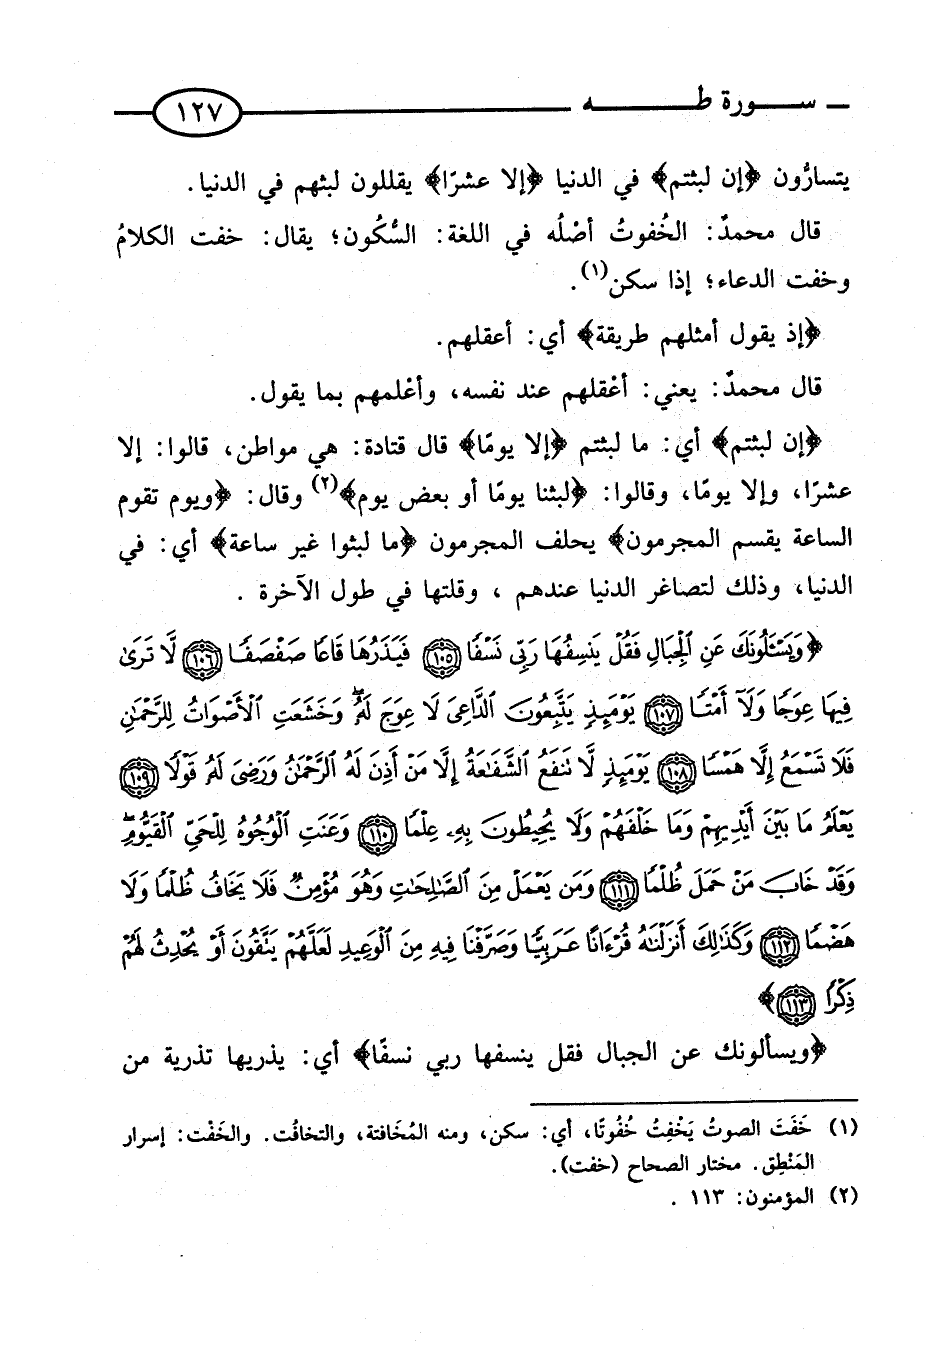 سورة طه ١٢٧
يتسارُّون ﴿إن لبثتم﴾ في الدنيا ﴿إلا عشرًا﴾ يقللون لبثهم في الدنيا.
قال محمدٌ: الخُفوتُ أصْلُه في اللغة: السُّكُون؛ يقال: خفت الكلامُ
وخفت الدعاء؛ إذا سكن(١).
﴿إذ يقول أمثلهم طريقة﴾ أي: أعقلهم.
قال محمدٌ: يعني: أعْقلهم عند نفسه، وأعْلمهم بما يقول.
﴿إن لبثتم﴾ أي: ما لبثتم ﴿إلا يومًا﴾ قال قتادة: هي مواطن، قالوا: إلا
عشرًا، وإلا يومًا، وقالوا: ﴿لبثنا يومًا أو بعض يوم﴾(٢) وقال: ﴿ويوم تقوم
الساعة يقسم المجرمون﴾ يحلف المجرمون ﴿ما لبثوا غير ساعة﴾ أي: في
الدنيا، وذلك لتصاغر الدنيا عندهم ، وقلتها في طول الآخرة .
﴿وَيَسْـَٔلُونَكَ عَنِ ٱلْجِبَالِ فَقُلْ يَنسِفُهَا رَبِّى نَسْفًا ١٠٥ فَيَذَرُهَا قَاعًا صَفْصَفًا ١٠٦ لَّا تَرَىٰ
فِيهَا عِوَجًا وَلَآ أَمْتًا ١٠٧ يَوْمَئِذٍ يَتَّبِعُونَ ٱلدَّاعِىَ لَا عِوَجَ لَهُۥ ۖ وَخَشَعَتِ ٱلْأَصْوَاتُ لِلرَّحْمَٰنِ
فَلَا تَسْمَعُ إِلَّا هَمْسًا ١٠٨ يَوْمَئِذٍ لَّا تَنفَعُ ٱلشَّفَٰعَةُ إِلَّا مَنْ أَذِنَ لَهُ ٱلرَّحْمَٰنُ وَرَضِىَ لَهُۥ قَوْلًا ١٠٩
يَعْلَمُ مَا بَيْنَ أَيْدِيهِمْ وَمَا خَلْفَهُمْ وَلَا يُحِيطُونَ بِهِۦ عِلْمًا ١١٠ وَعَنَتِ ٱلْوُجُوهُ لِلْحَىِّ ٱلْقَيُّومِ ۖ
وَقَدْ خَابَ مَنْ حَمَلَ ظُلْمًا ١١١ وَمَن يَعْمَلْ مِنَ ٱلصَّٰلِحَٰتِ وَهُوَ مُؤْمِنٌ فَلَا يَخَافُ ظُلْمًا وَلَا
هَضْمًا ١١٢ وَكَذَٰلِكَ أَنزَلْنَٰهُ قُرْءَانًا عَرَبِيًّا وَصَرَّفْنَا فِيهِ مِنَ ٱلْوَعِيدِ لَعَلَّهُمْ يَتَّقُونَ أَوْ يُحْدِثُ لَهُمْ
ذِكْرًا ١١٣﴾
﴿ويسألونك عن الجبال فقل ينسفها ربي نسفًا﴾ أي: يذريها تذرية من
(١) خَفَتَ الصوتُ يَخْفِتُ خُفُوتًا، أي: سكن، ومنه المُخَافتة، والتخافُت. والخَفْت: إسرار
المَنْطِق. مختار الصحاح (خفت).
(٢) المؤمنون: ١١٣ .